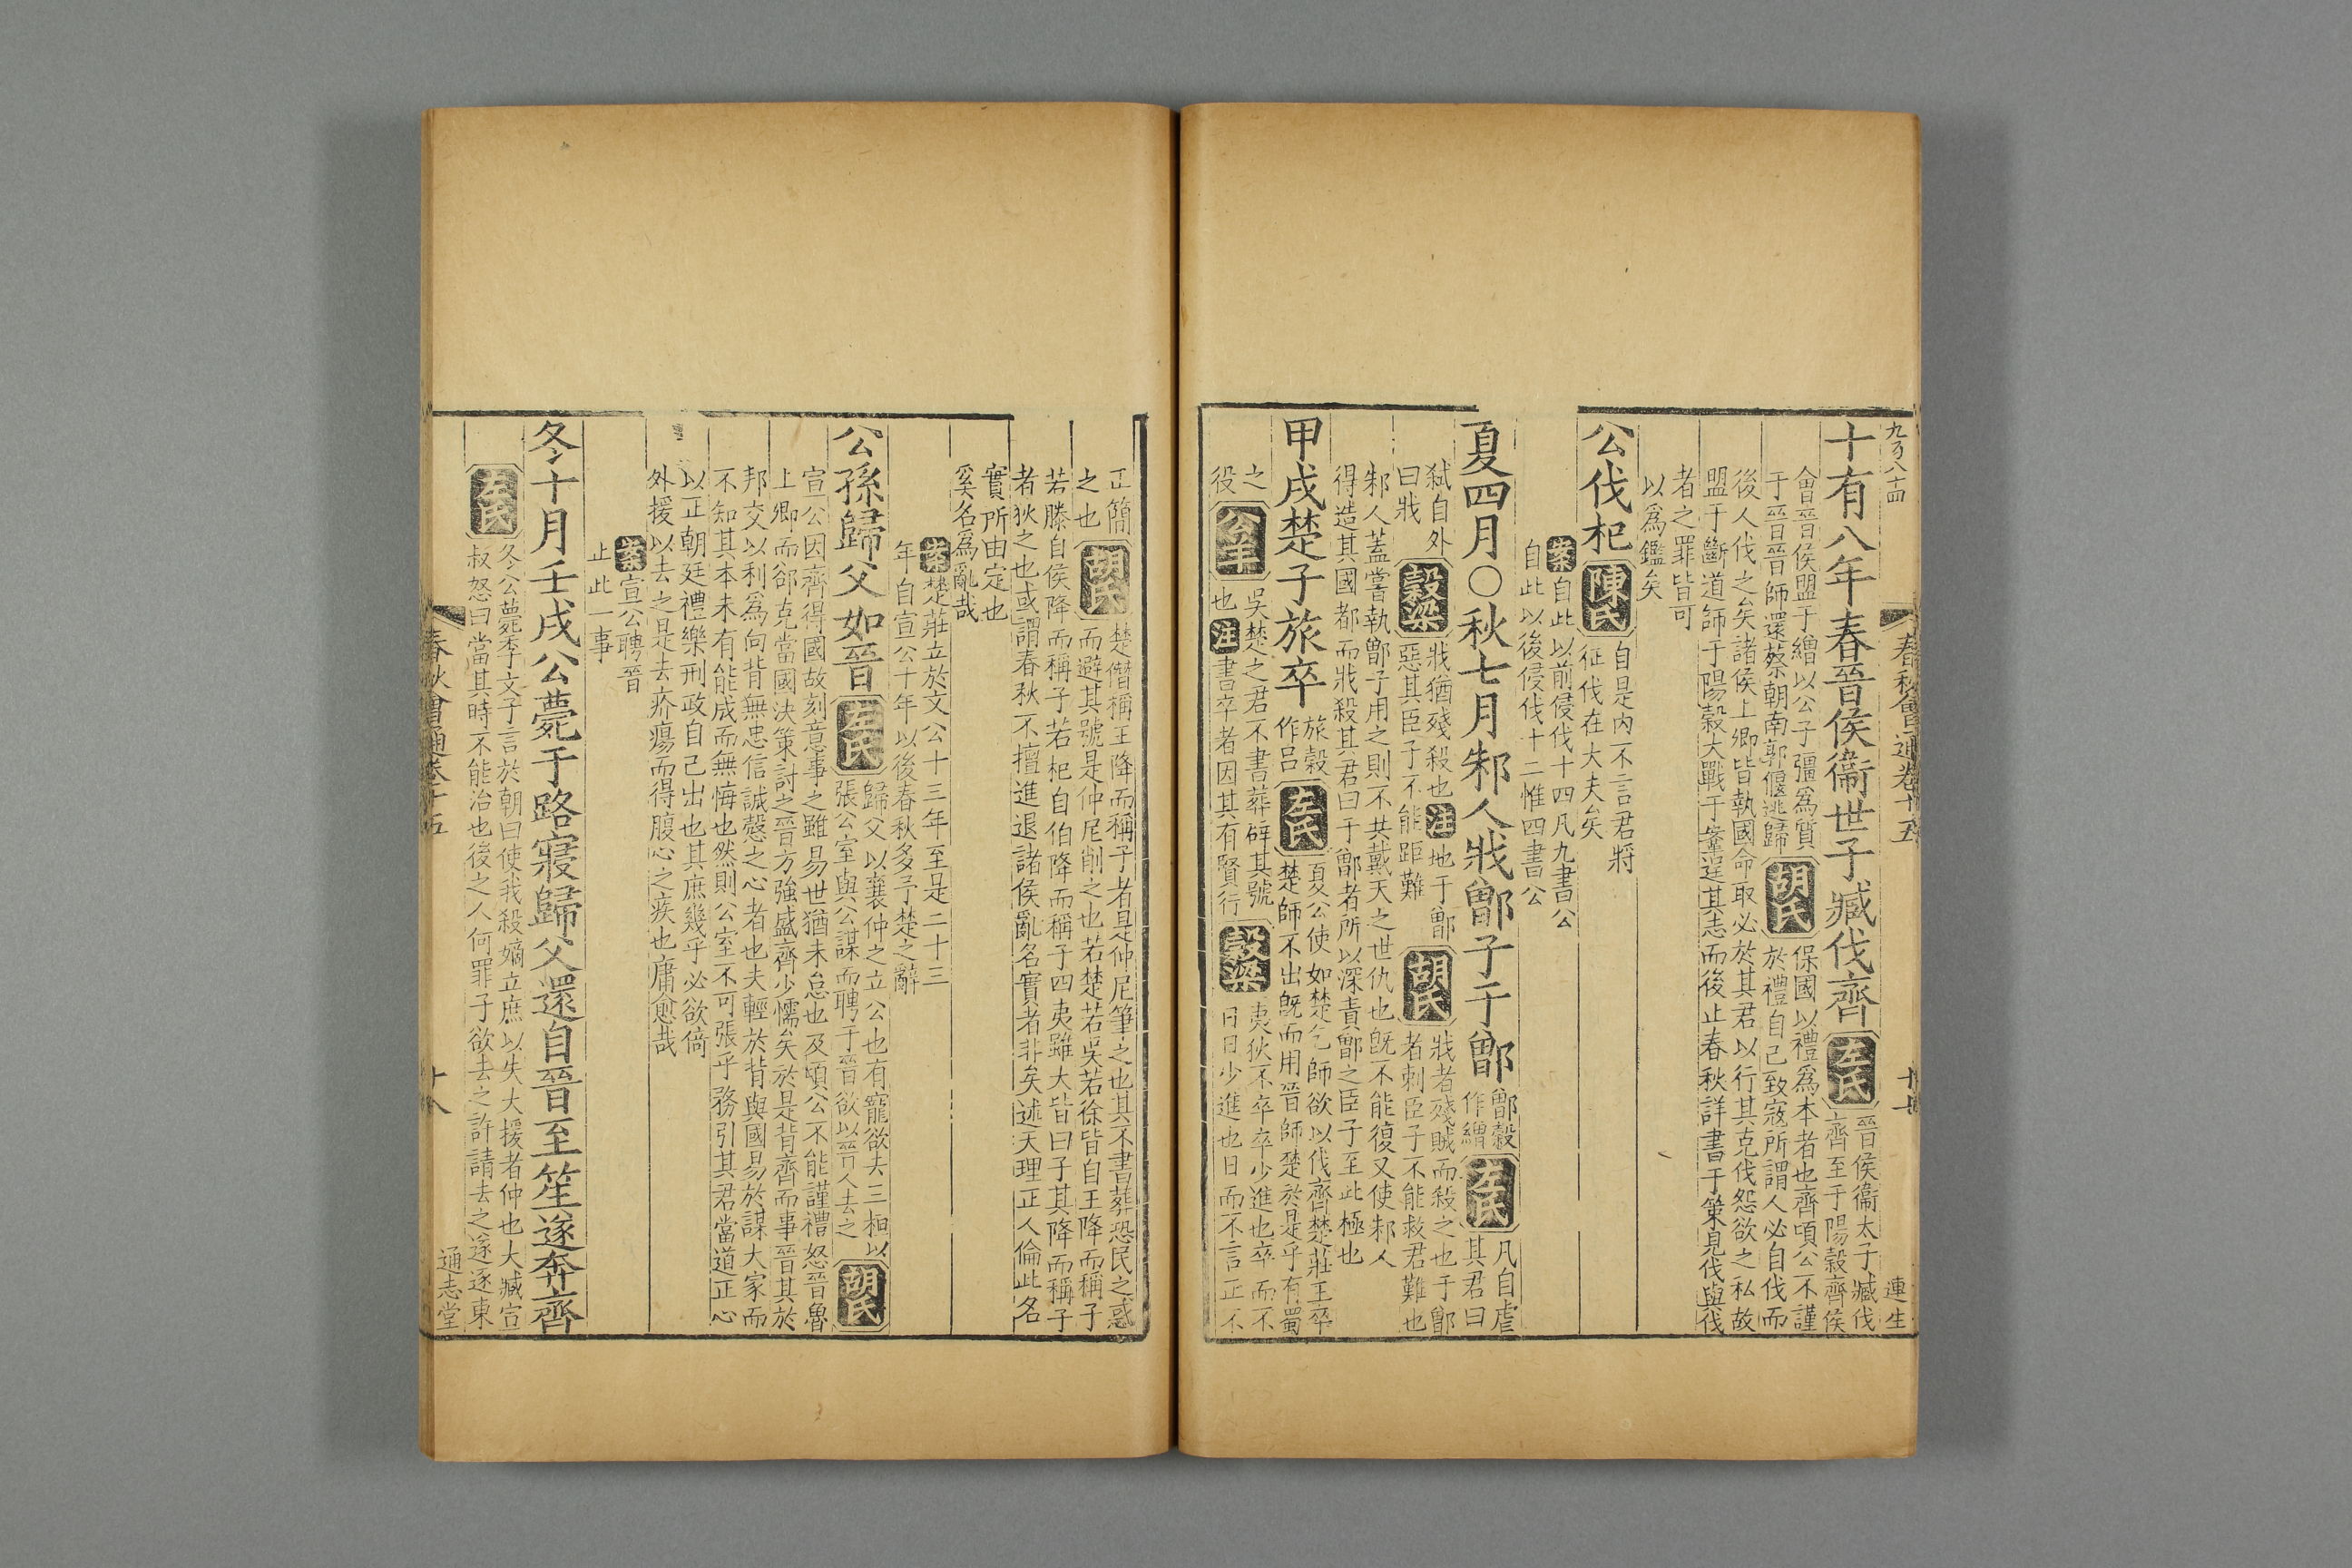 春秋會通卷十五
十七
連生
十有八年春晉侯衞世子臧伐齊
左氏
晉侯衞太子臧伐
齊至于陽穀齊侯
會晉侯盟于繒以公子彊爲質
于晉晉師還蔡朝南郭偃逃歸
胡氏
保國以禮爲本者也齊頃公不謹
於禮自己致寇所謂人必自伐而
後人伐之矣諸侯上卿皆執國命取必於其君以行其克伐怨欲之私故
盟于斷道師于陽穀大戰于鞌逞其志而後止春秋詳書于策見伐與伐
者之罪皆可
以爲鑑矣
公伐杞
陳氏
自是內不言君將
征伐在大夫矣
案
自此以前侵伐十四凡九書公
自此以後侵伐十二惟四書公
夏四月〇秋七月邾人戕鄫子于鄫
鄫穀
作繒
左氏
凡自虐
其君曰
弑自外
曰戕
穀梁
戕猶殘殺也
注
地于鄫
惡其臣子不能距難
胡氏
戕者殘賊而殺之也于鄫
者刺臣子不能救君難也
邾人蓋嘗執鄫子用之則不共戴天之世仇也旣不能復又使邾人
得造其國都而戕殺其君曰于鄫者所以深責鄫之臣子至此極也
甲戌楚子旅卒
旅穀
作吕
左氏
夏公使如楚乞師欲以伐齊楚莊王卒
楚師不出旣而用晉師楚於是乎有蜀
之
役
公羊
吳楚之君不書葬辟其號
也
注
書卒者因其有賢行
穀梁
夷狄不卒卒少進也卒而不
日日少進也日而不言正不
正簡
之也
胡氏
楚僭稱王降而稱子者是仲尼筆之也其不書葬恐民之惑
而避其號是仲尼削之也若楚若吳若徐皆自王降而稱子
若滕自侯降而稱子若杞自伯降而稱子四夷雖大皆曰子其降而稱子
者狄之也或謂春秋不擅進退諸侯亂名實者非矣述天理正人倫此名
實所由定也
奚名爲亂哉
案
楚莊立於文公十三年至是二十三
年自宣公十年以後春秋多予楚之辭
公孫歸父如晉
左氏
歸父以襄仲之立公也有寵欲去三桓以
張公室與公謀而聘于晉欲以晉人去之
胡氏
宣公因齊得國故刻意事之雖易世猶未怠也及頃公不能謹禮怒晉魯
上卿而郤克當國決策討之晉方強盛齊少懦矣於是背齊而事晉其於
邦交以利爲向背無忠信誠慤之心者也夫輕於背與國易於謀大家而
不知其本未有能成而無悔也然則公室不可張乎務引其君當道正心
以正朝廷禮樂刑政自己出也其庶幾乎必欲倚
外援以去之是去疥瘍而得腹心之疾也庸愈哉
案
宣公聘晉
止此一事
冬十月壬戌公薨于路寢歸父還自晉至笙遂奔齊
左氏
冬公薨季文子言於朝曰使我殺嫡立庶以失大援者仲也夫臧宣
叔怒曰當其時不能治也後之人何罪子欲去之許請去之遂逐東
春秋會通卷十五
十八
通志堂